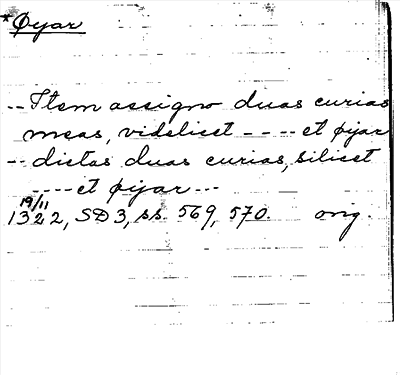 *Øyar
-- Item assigno duas curias
meas, videlicet ---- et øijar
-- dictas duas curias, silicet
---- et øijar ---
19/11
1322, SD 3, ss. 569, 570. orig.